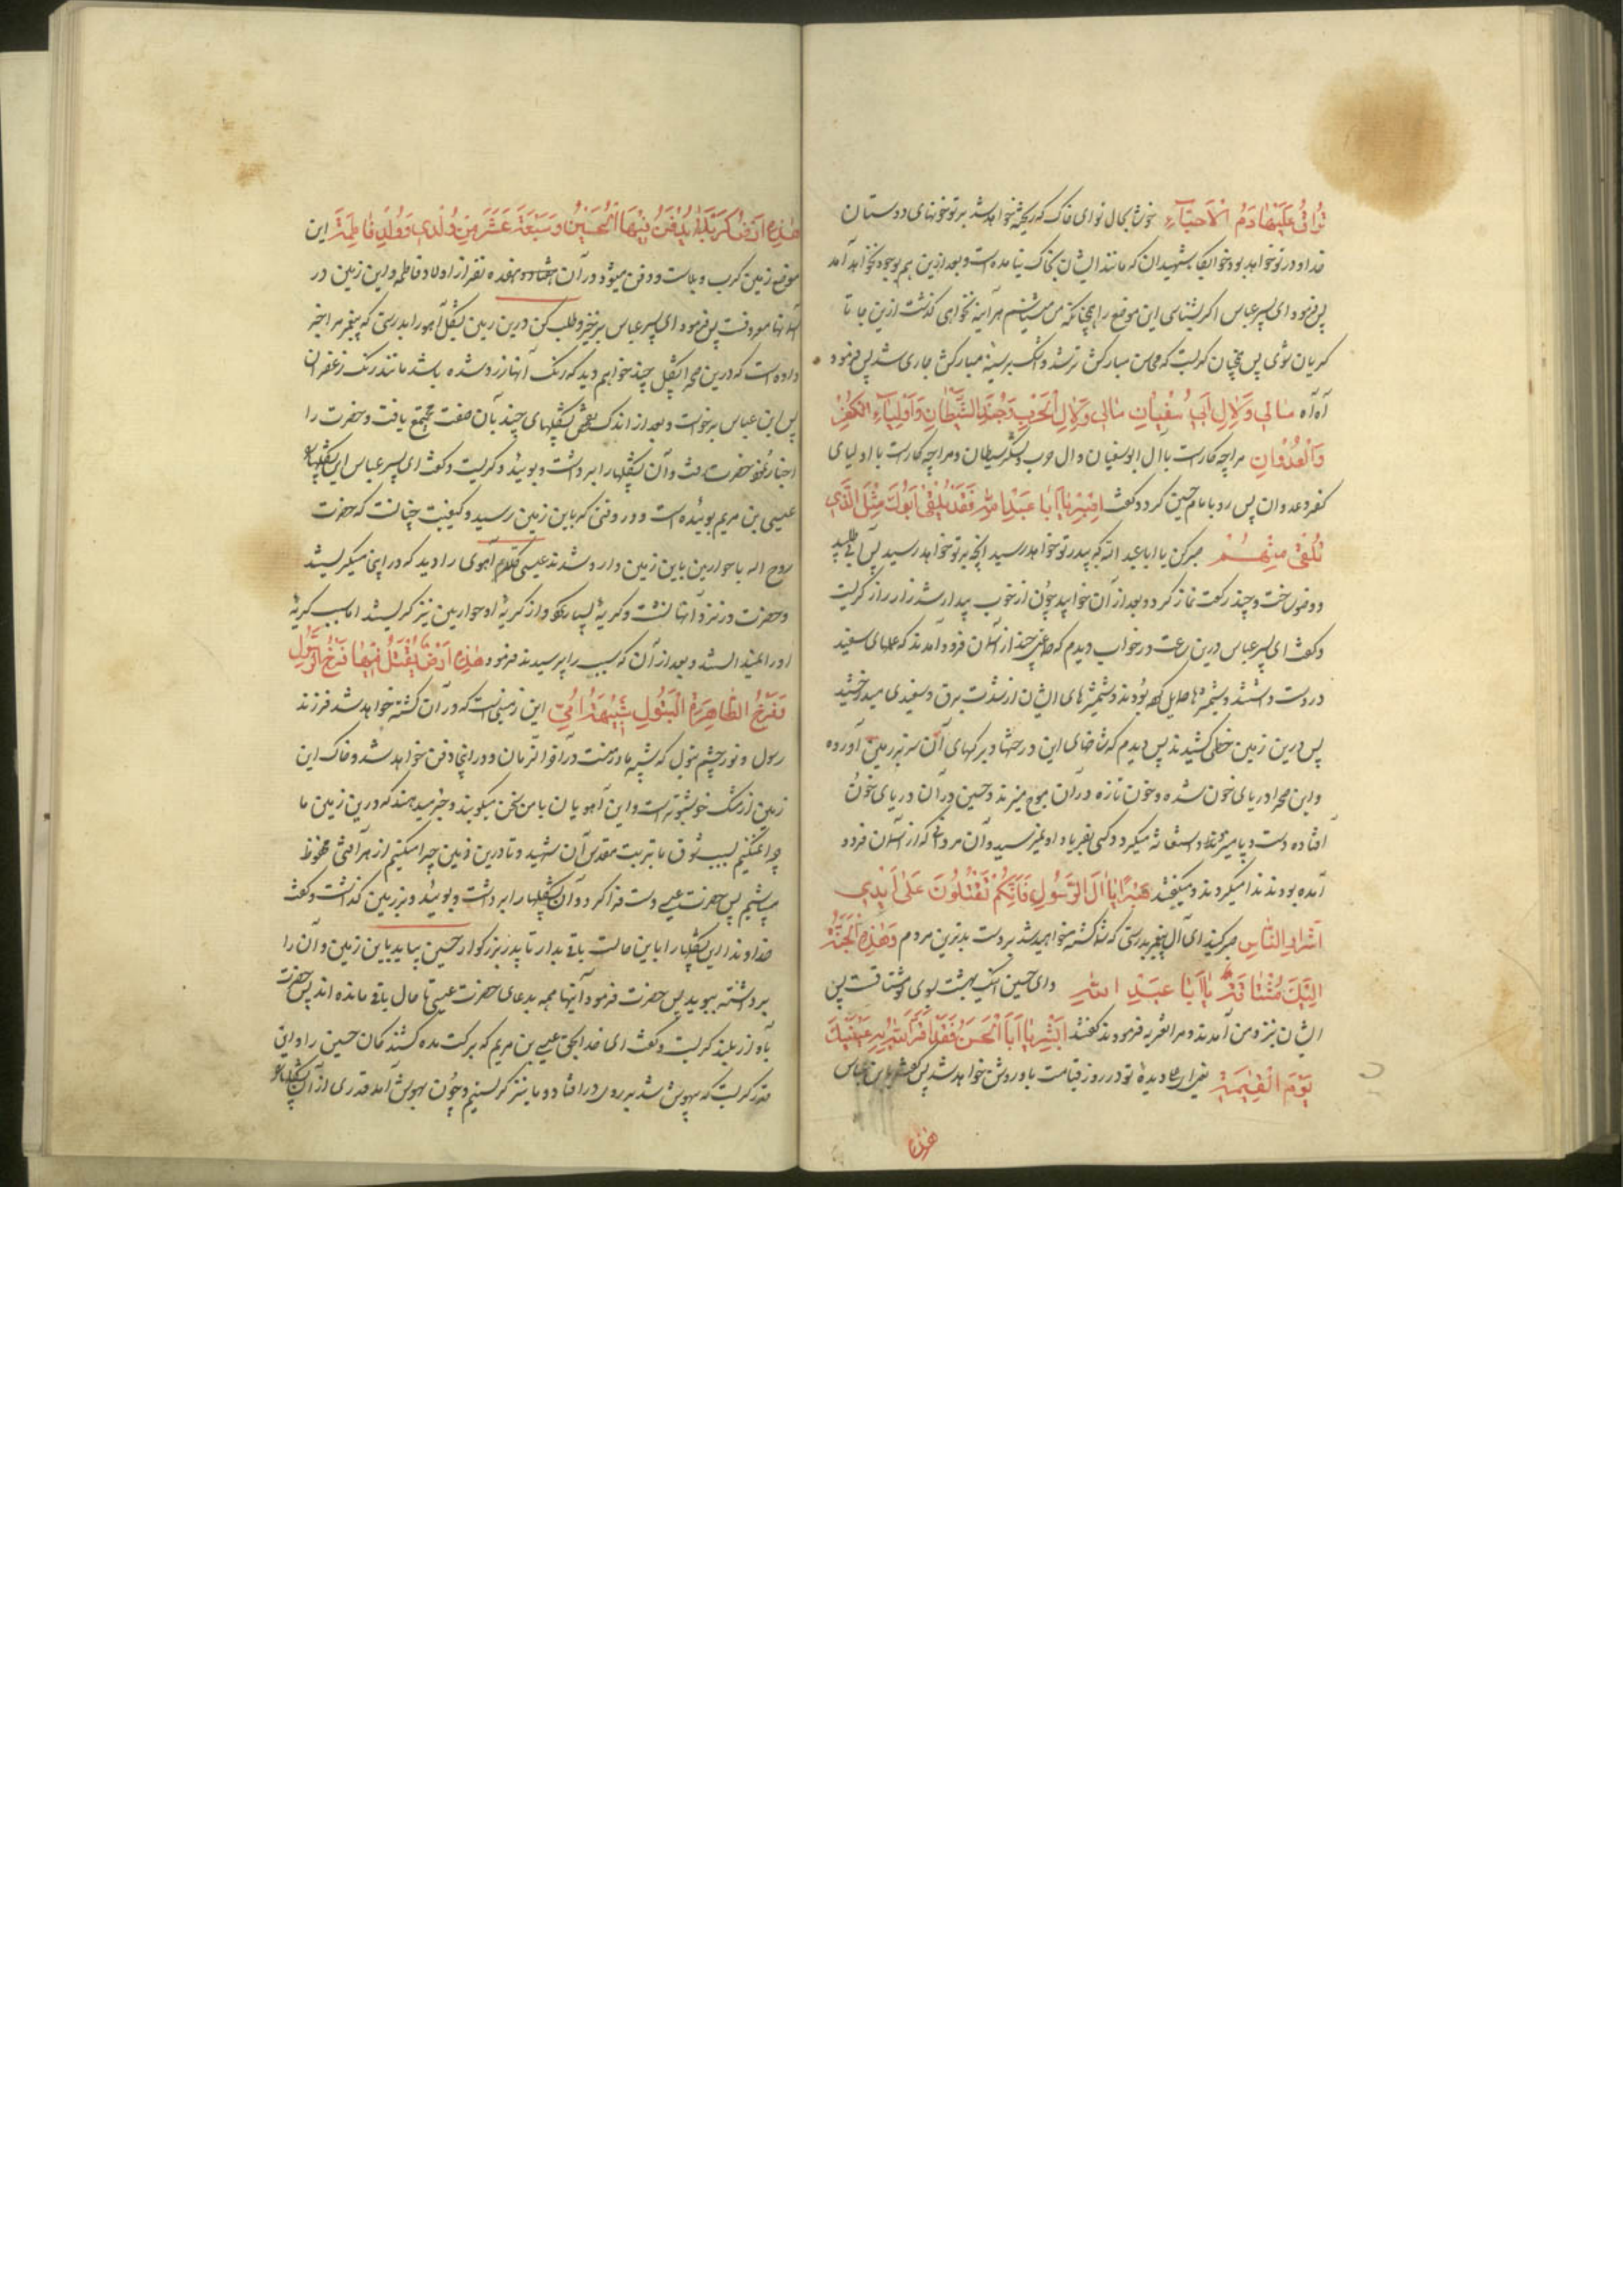 تُراقُ عَلَیْهَا دَمُ الْاَحِبَّآءِ خوشا بحال تو ای خاک که ریخته خواهد شد بر تو خونهای دوستان
خدا و در تو خواهد بود خوابگاه شهیدان که مانند ایشان بخاک نیامده است و بعد ازین هم بوجود نخواهد آمد
پس فرمود ای پسر عباس اگر بشناسی این موضع را چنانکه من میشناسم هر آینه نخواهی گذشت ازین جا تا
گریان شوی پس چنان گریست که محاسن مبارکش تر شد و اشک بر سینه مبارکش جاری شد پس فرمود
آه آه مٰالی وَلِاٰلِ اَبی سُفْیٰانِ مٰالی وَلِاٰلِ الْحَرْبِ وَجُنْدِ الشَّیْطٰانِ وَاَوْلِیٰآءِ الْکُفْرِ
وَالْعُدْوٰانِ مرا چه کار است با آل ابوسفیان و آل حرب و لشکر شیطان و مرا چه کار است با اولیای
کفر و عدوان پس رو بامام حسین کرد و گفت اِصْبِرْ یٰا اَبٰا عَبْدِ اللهِ فَقَدْ یَلْقٰی اَبُوکَ مِثْلَ الَّذی
تَلْقٰی مِنْهُمْ صبر کن یا ابا عبد الله که بپدر تو خواهد رسید آنچه بر تو خواهد رسید پس آبی طلبید
و وضو ساخت و چند رکعت نماز کرد و بعد از آن خوابید چون از خواب بیدار شد زار زار گریست
و گفت ای پسر عباس درین ساعت در خواب دیدم که مردی چند از آسمان فرود آمدند که علمهای سفید
در دست داشتند و شمشیرها حمایل کرده بودند و شمشیرهای ایشان از شدت برق و سفیدی میدرخشید
پس درین زمین خطی کشیدند پس دیدم که شاخهای این درختها و برگهای آن سر بر زمین آورده
و این صحرا دریای خون شده و خون تازه در آن موج میزند و حسین در آن دریای خون
افتاده دست و پا میزند و استغاثه میکرد و کسی بفریاد او نمیرسید و آن مردانی که از آسمان فرود
آمده بودند ندا میکردند و میگفتند صَبْرًا یٰا اٰلَ الرَّسُولِ فَاِنَّکُمْ تُقْتَلُونَ عَلٰی اَیْدِی
اَشْرٰارِ النّٰاسِ صبر کنید ای آل پیغمبر بدرستی که شما کشته خواهید شد بر دست بدترین مردم وَهٰذِهِ الْجَنَّةُ
اِلَیْکَ مُشْتٰاقَةٌ یٰا اَبٰا عَبْدِ اللهِ و ای حسین اینک بهشت بسوی تو مشتاقست پس
ایشان نزد من آمدند و مرا تعزیه فرمودند و گفتند اَبْشِرْ یٰا اَبَا الْحَسَنِ فَقَدْ اَقَرَّ اللهُ بِهِ عَیْنَیْکَ
یَوْمَ الْقِیٰمَةِ دیده تو در روز قیامت باو روشن خواهد شد پس گفت یا ابن عباس
هٰذِهِ
هٰذِهِ اَرْضُ کَرْبَلٰا یُدْفَنُ فیهَا الْحُسَیْنُ وَسَبْعَةَ عَشَرَ مِنْ وُلْدی وَوُلْدِ فٰاطِمَةَ این
موضع زمین کرب و بلاست و دفن میشود در آن هفده نفر از اولاد و فاطمه و این زمین در
آسمانها معروفست پس فرمود ای پسر عباس برخیز و طلب کن درین زمین پشکل آهو را بدرستی که پیغمبر مرا خبر
داده است که درین صحرا پشکل چند خواهیم دید که رنگ آنها زرد شده باشد مانند رنگ زعفران
پس ابن عباس برخواست و بعد از اندک پشکلهای چند بآن صفت مجتمع یافت و حضرت را
اخبار نمود حضرت رفت و آن پشکلها را برداشت و بوئید و گریست و گفت ای پسر عباس این پشکلها را
عیسی بن مریم بوئیده است و در وقتی که باین زمین رسید و کیفیت چنانست که حضرت
روح الله با حواریین باین زمین وارد شدند عیسی آهوی را دید که در اینجا میگریستند
و حضرت در نزد آنها نشست و گریه بسیار نمود و از گریه او حواریین نیز گریستند اما سبب گریه
او را نمیدانستند و بعد از آن که سبب را پرسیدند فرمود هٰذِهِ اَرْضٌ یُقْتَلُ فیهٰا فَرْخُ الرَّسُولِ
وَفَرْخُ الطّٰاهِرَةِ الْبَتُولِ شَبیهَةِ اُمّی این زمینیست که در آن کشته خواهد شد فرزند
رسول و نور چشم بتول که شبیه مادر منست در آخر الزمان و در اینجا دفن خواهد شد و خاک این
زمین از مشک خوشبوتر است و این آهویان با من سخن میگویند و خبر میدهند که درین زمین ما
چرا میکنیم بسبب شوق ما بتربت مقدس آن شهید و تا درین زمین چرا میکنیم از هر آفتی محفوظ
میباشیم پس حضرت عیسی دست فرا کرد و آن پشکلها را برداشت و بوئید و بر زمین گذاشت و گفت
خداوندا این پشکلها را باین حالت باقی بدار تا پدر بزرگوار حسین بیاید باین زمین و آن را
برداشته ببوید پس حضرت فرمود آنها همه بدعای حضرت عیسی تا حال باقی مانده اند پس حضرت
بآواز بلند گریست و گفت ای خدا بحق عیسی بن مریم که برکت مده کشندکان حسین را و این
قدر گریست که بیهوش شد بر روی در افتاد و ما نیز گریستیم و چون بهوش آمد قدری از آن پشکلها را